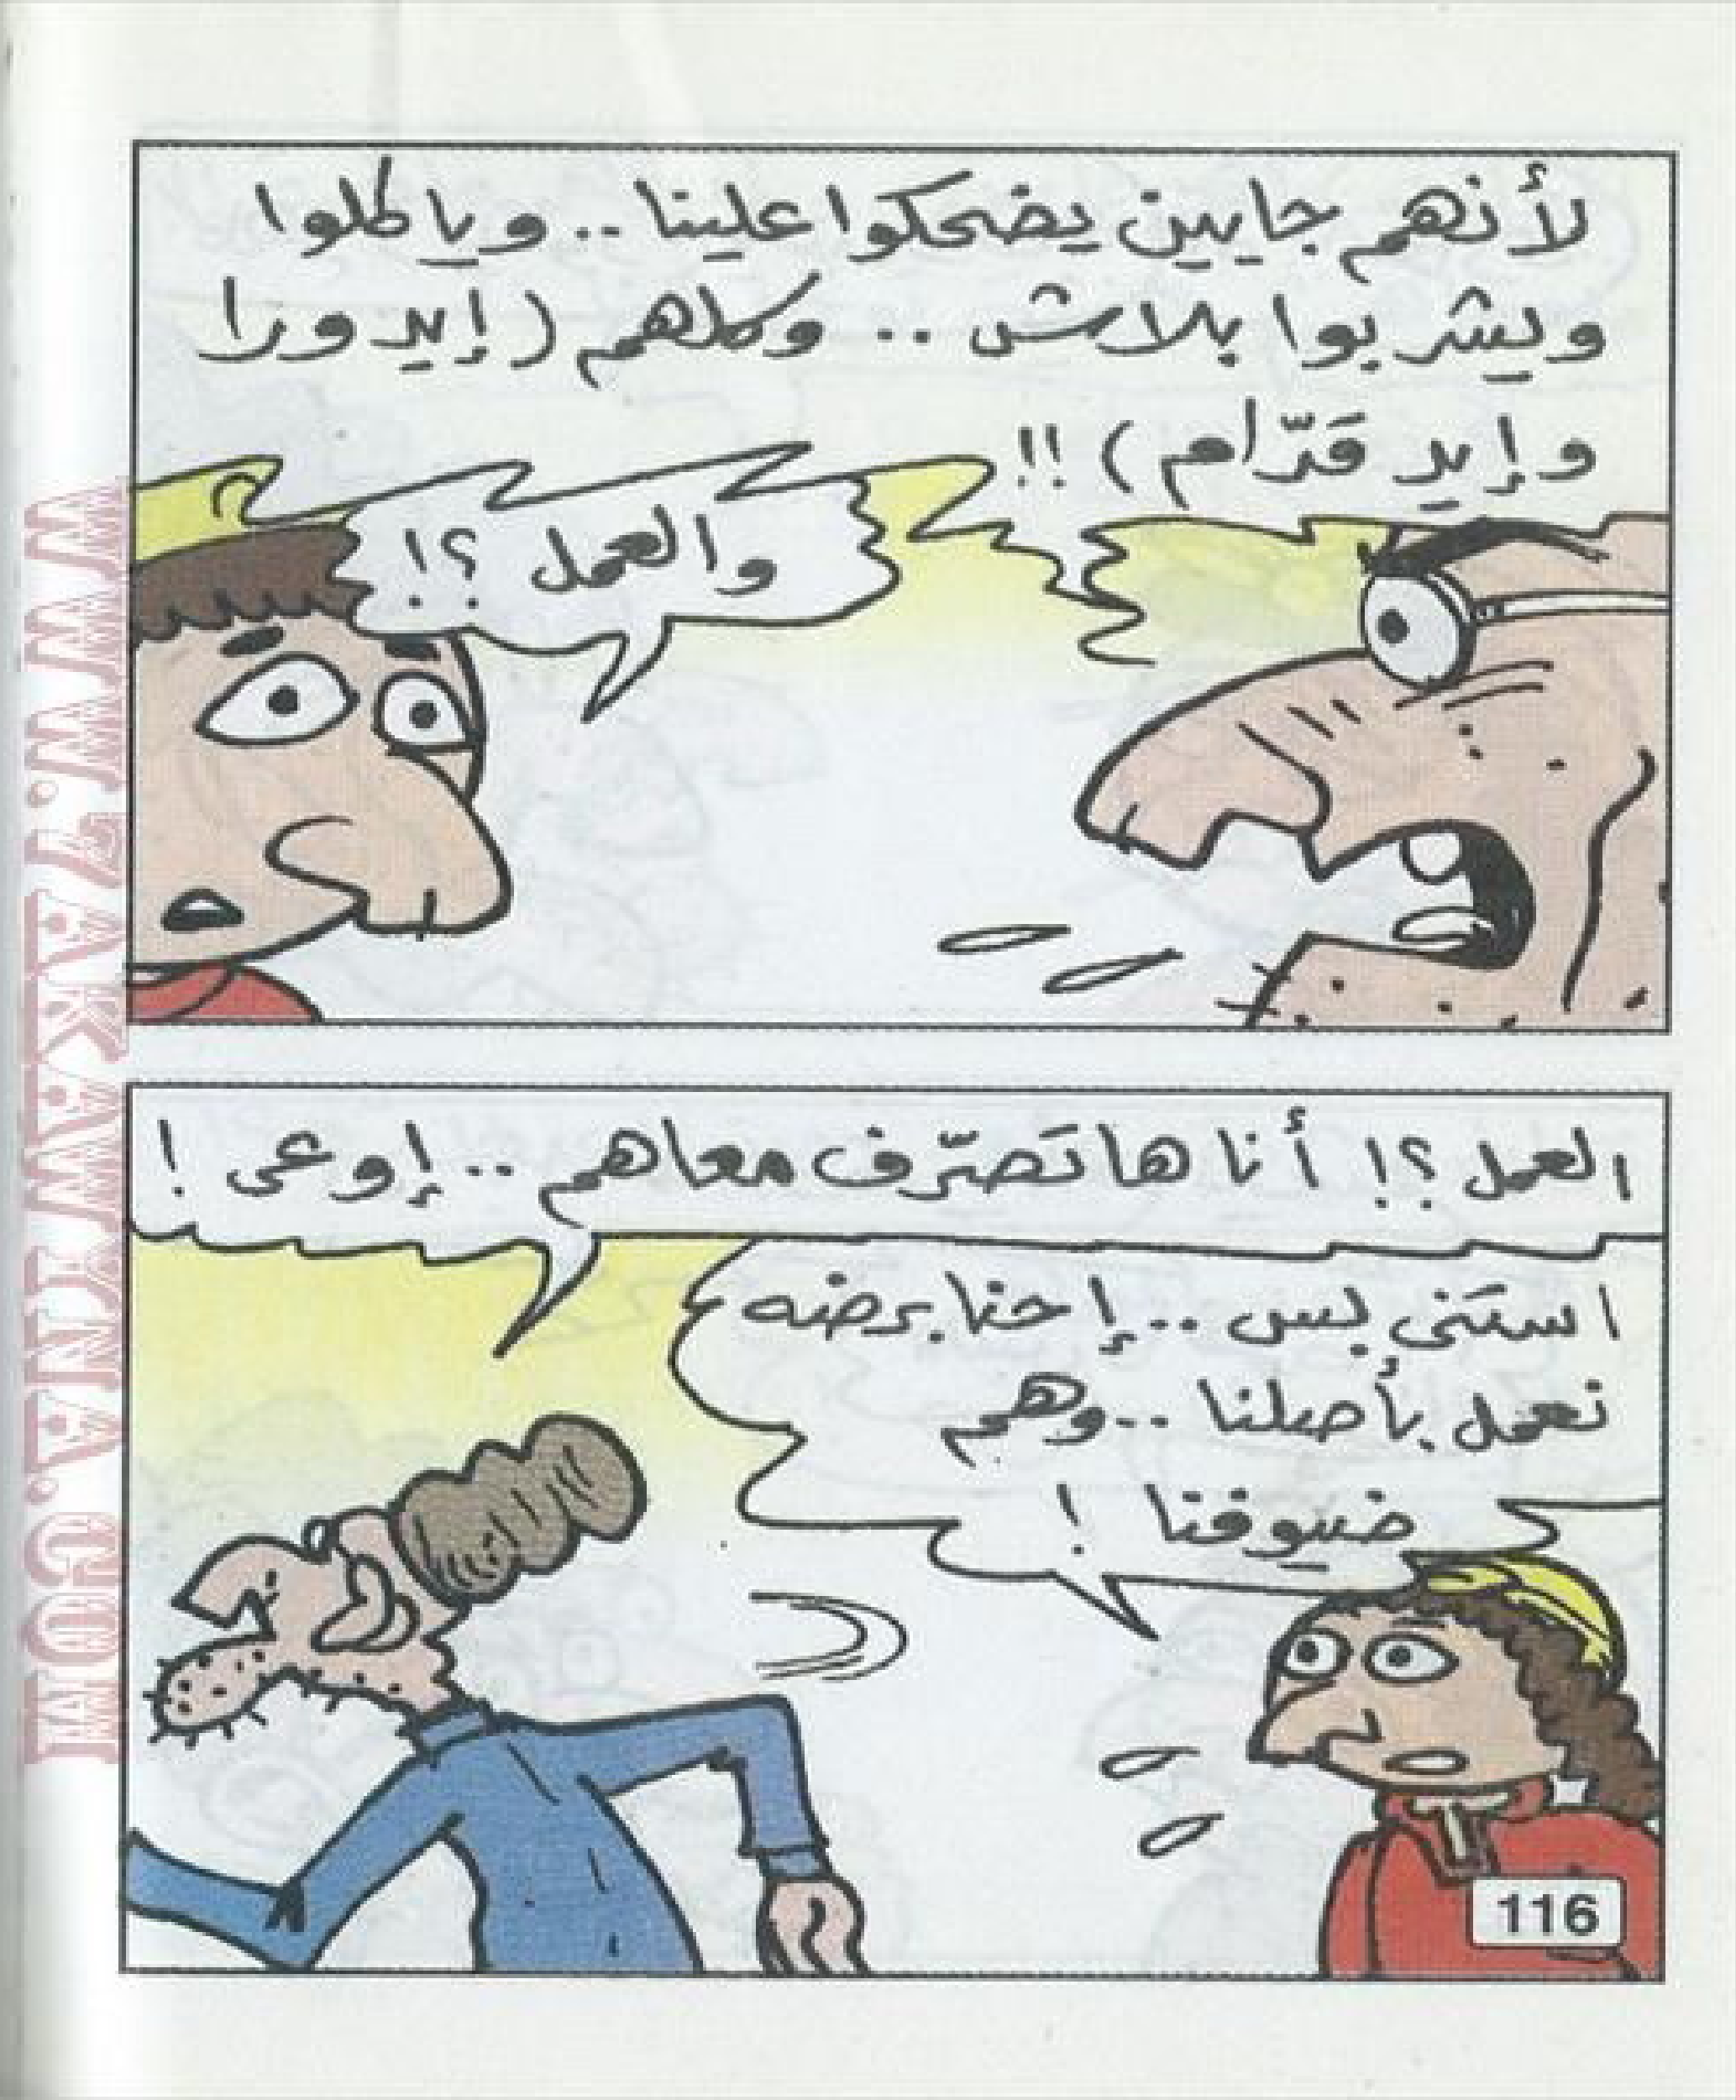 لأنهم جايين يضحكوا علينا .. وياكلوا
ويشربوا بلاش .. وكلهم (إيد ورا
وإيد قدّام) !!
والعمل ؟!
العمل ؟! أنا هاتَصرّف معاهم .. إوعى !
استنى بس .. إحنا برضه
نعمل بأصلنا .. وهم
ضيوفنا !
116
WWW.7AKAWINA.COM